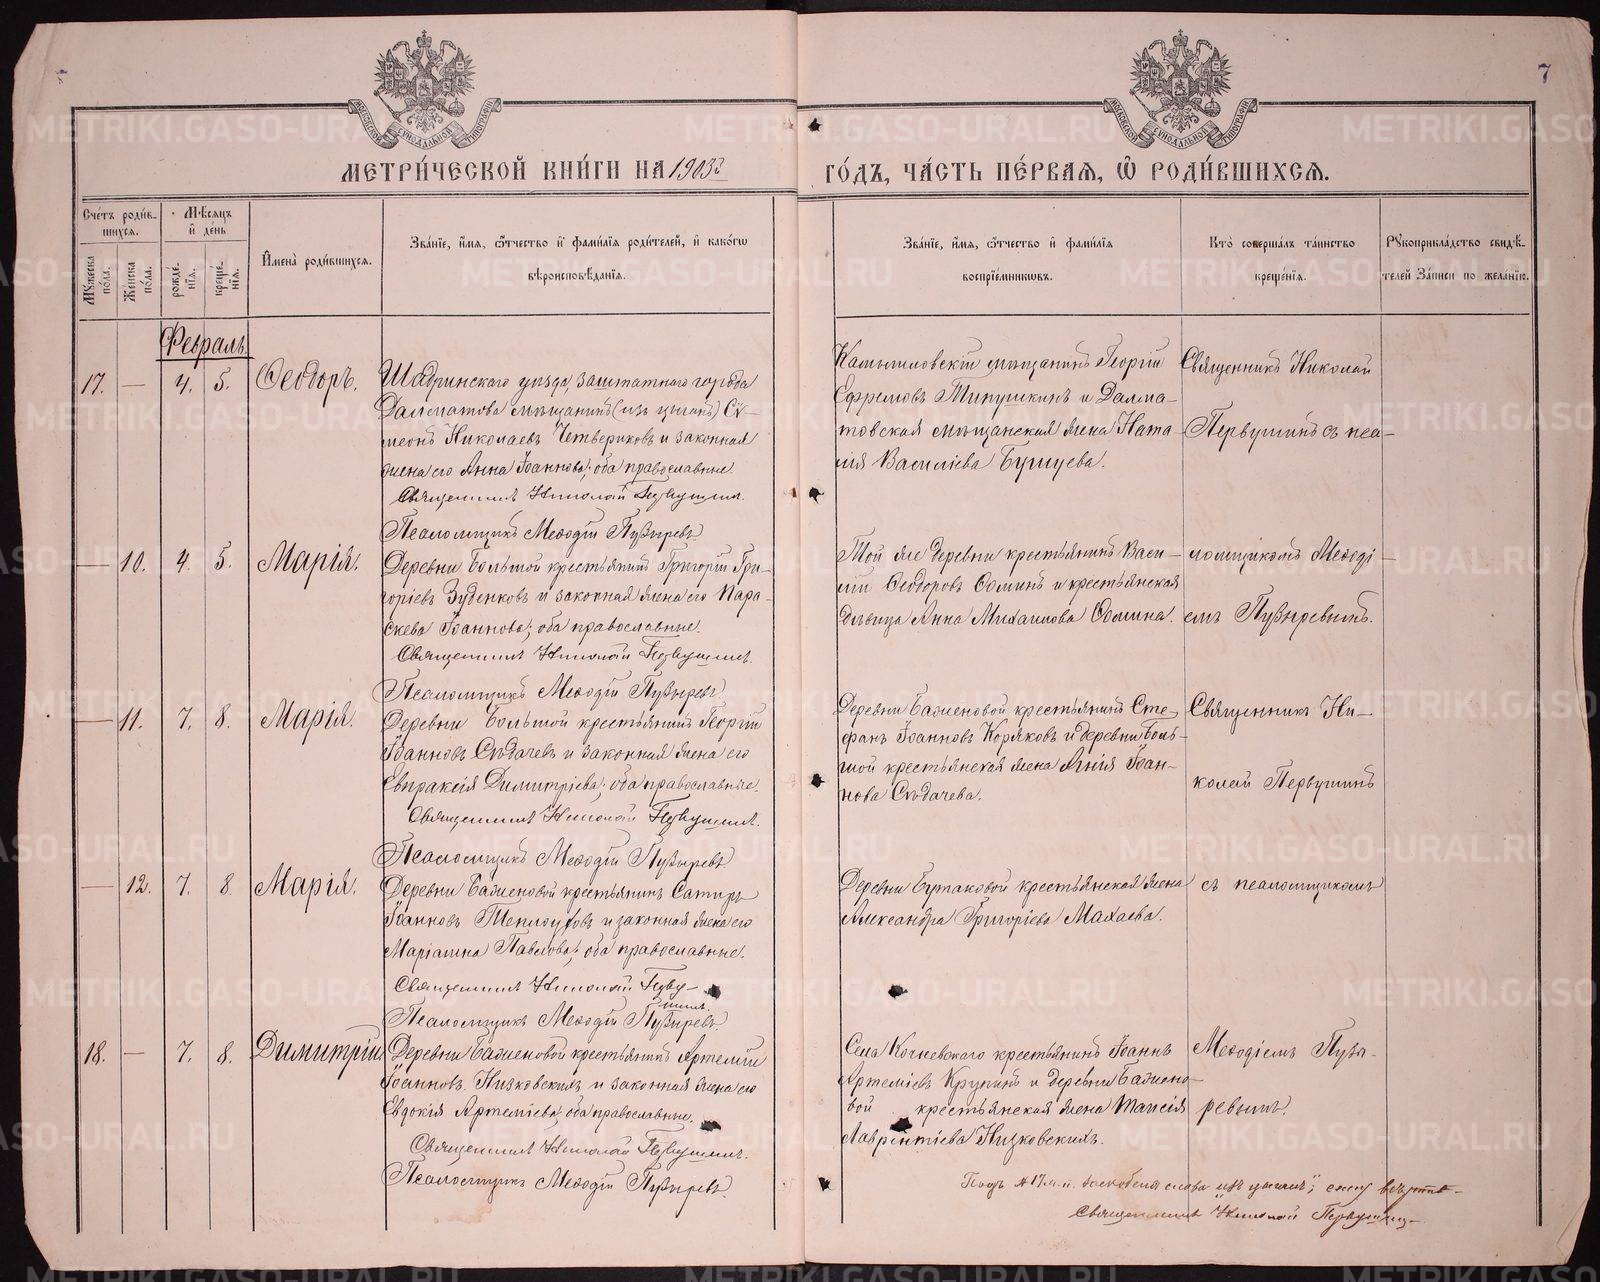 7
МЕТРИ́ЧЕСКОЙ КНИ́ГИ НА 1903й ГО́ДЪ, ЧА́СТЬ ПЕ́РВАЯ, Ѽ РОДИ́ВШИХСЯ.
Сче́тъ роди́вшихся.
Мꙋ́жеска по́ла.
Же́нска по́ла.
Мѣ́сяцъ и҆ де́нь
рожде́нїя.
креще́нїя.
И҆мена̀ роди́вшихся.
Зва́нїе, и҆́мя, ѻ҆́тчество и҆ фами́лїя роди́телей, и҆ како́гѡ
вѣроисповѣ́данїя.
Зва́нїе, и҆́мя, ѻ҆́тчество и҆ фами́лїя
воспрїе́мникѡвъ.
Кто̀ соверша́лъ та́инство
креще́нїя.
Рꙋкоприкла́дство свидѣ́-
телей за́писи по жела́нїю.
Февраль
17. — 4. 5. Ѳеодоръ.
Шадринскаго уѣзда, заштатнаго города
Далматова мѣщанинъ (изъ цыганъ) Си-
меонъ Николаевъ Четвериковъ и законная
жена его Анна Іоаннова; оба православные.
Священникъ Николай Первушинъ.
Псаломщикъ Меѳодій Пузыревъ.
Камышловскій мѣщанинъ Георгій
Ефремовъ Типушкинъ и Далма-
товская мѣщанская жена Ната-
лія Василіева Бушуева.
Священникъ Николай
Первушинъ съ пса-
— 10. 4. 5. Марія.
Деревни Большой крестьянинъ Григорій Гри-
горіевъ Зуденковъ и законная жена его Пара-
скева Іоаннова; оба православные.
Священникъ Николай Первушинъ.
Псаломщикъ Меѳодій Пузыревъ.
Той же деревни крестьянинъ Васи-
лій Ѳеодоровъ Ѳоминъ и крестьянская
дѣвица Анна Михаилова Ѳомина.
ломщикомъ Меѳоді-
емъ Пузыревымъ.
— 11. 7. 8. Марія.
Деревни Большой крестьянинъ Георгій
Іоанновъ Сѣдачевъ и законная жена его
Евпраксія Димитріева; оба православные.
Священникъ Николай Первушинъ.
Псаломщикъ Меѳодій Пузыревъ
Деревни Баженовой крестьянинъ Сте-
фанъ Іоанновъ Коряковъ и деревни Боль-
шой крестьянская жена Агнія Іоан-
нова Сѣдачева.
Священникъ Ни-
колай Первушинъ
— 12. 7. 8. Марія.
Деревни Баженовой крестьянинъ Сатиръ
Іоанновъ Теплоуховъ и законная жена его
Маріамна Павлова; оба православные.
Священникъ Николай Перву-
шинъ.
Псаломщикъ Меѳодій Пузыревъ.
Деревни Бутаковой крестьянская жена
Александра Григоріева Махаева.
съ псаломщикомъ
18. — 7. 8. Димитрій
Деревни Баженовой крестьянинъ Артемій
Іоанновъ Низковскихъ и законная жена его
Евдокія Артеміева; оба православные.
Священникъ Николай Первушинъ.
Псаломщикъ Меѳодій Пузыревъ.
Села Кочневскаго крестьянинъ Іоаннъ
Артеміевъ Крупинъ и деревни Бажено-
вой крестьянская жена Таисія
Лаврентіева Низковскихъ.
Меѳодіемъ Пузы-
ревымъ.
Подъ № 17 м. п. слова "изъ цыганъ";
Священникъ Николай Первушинъ